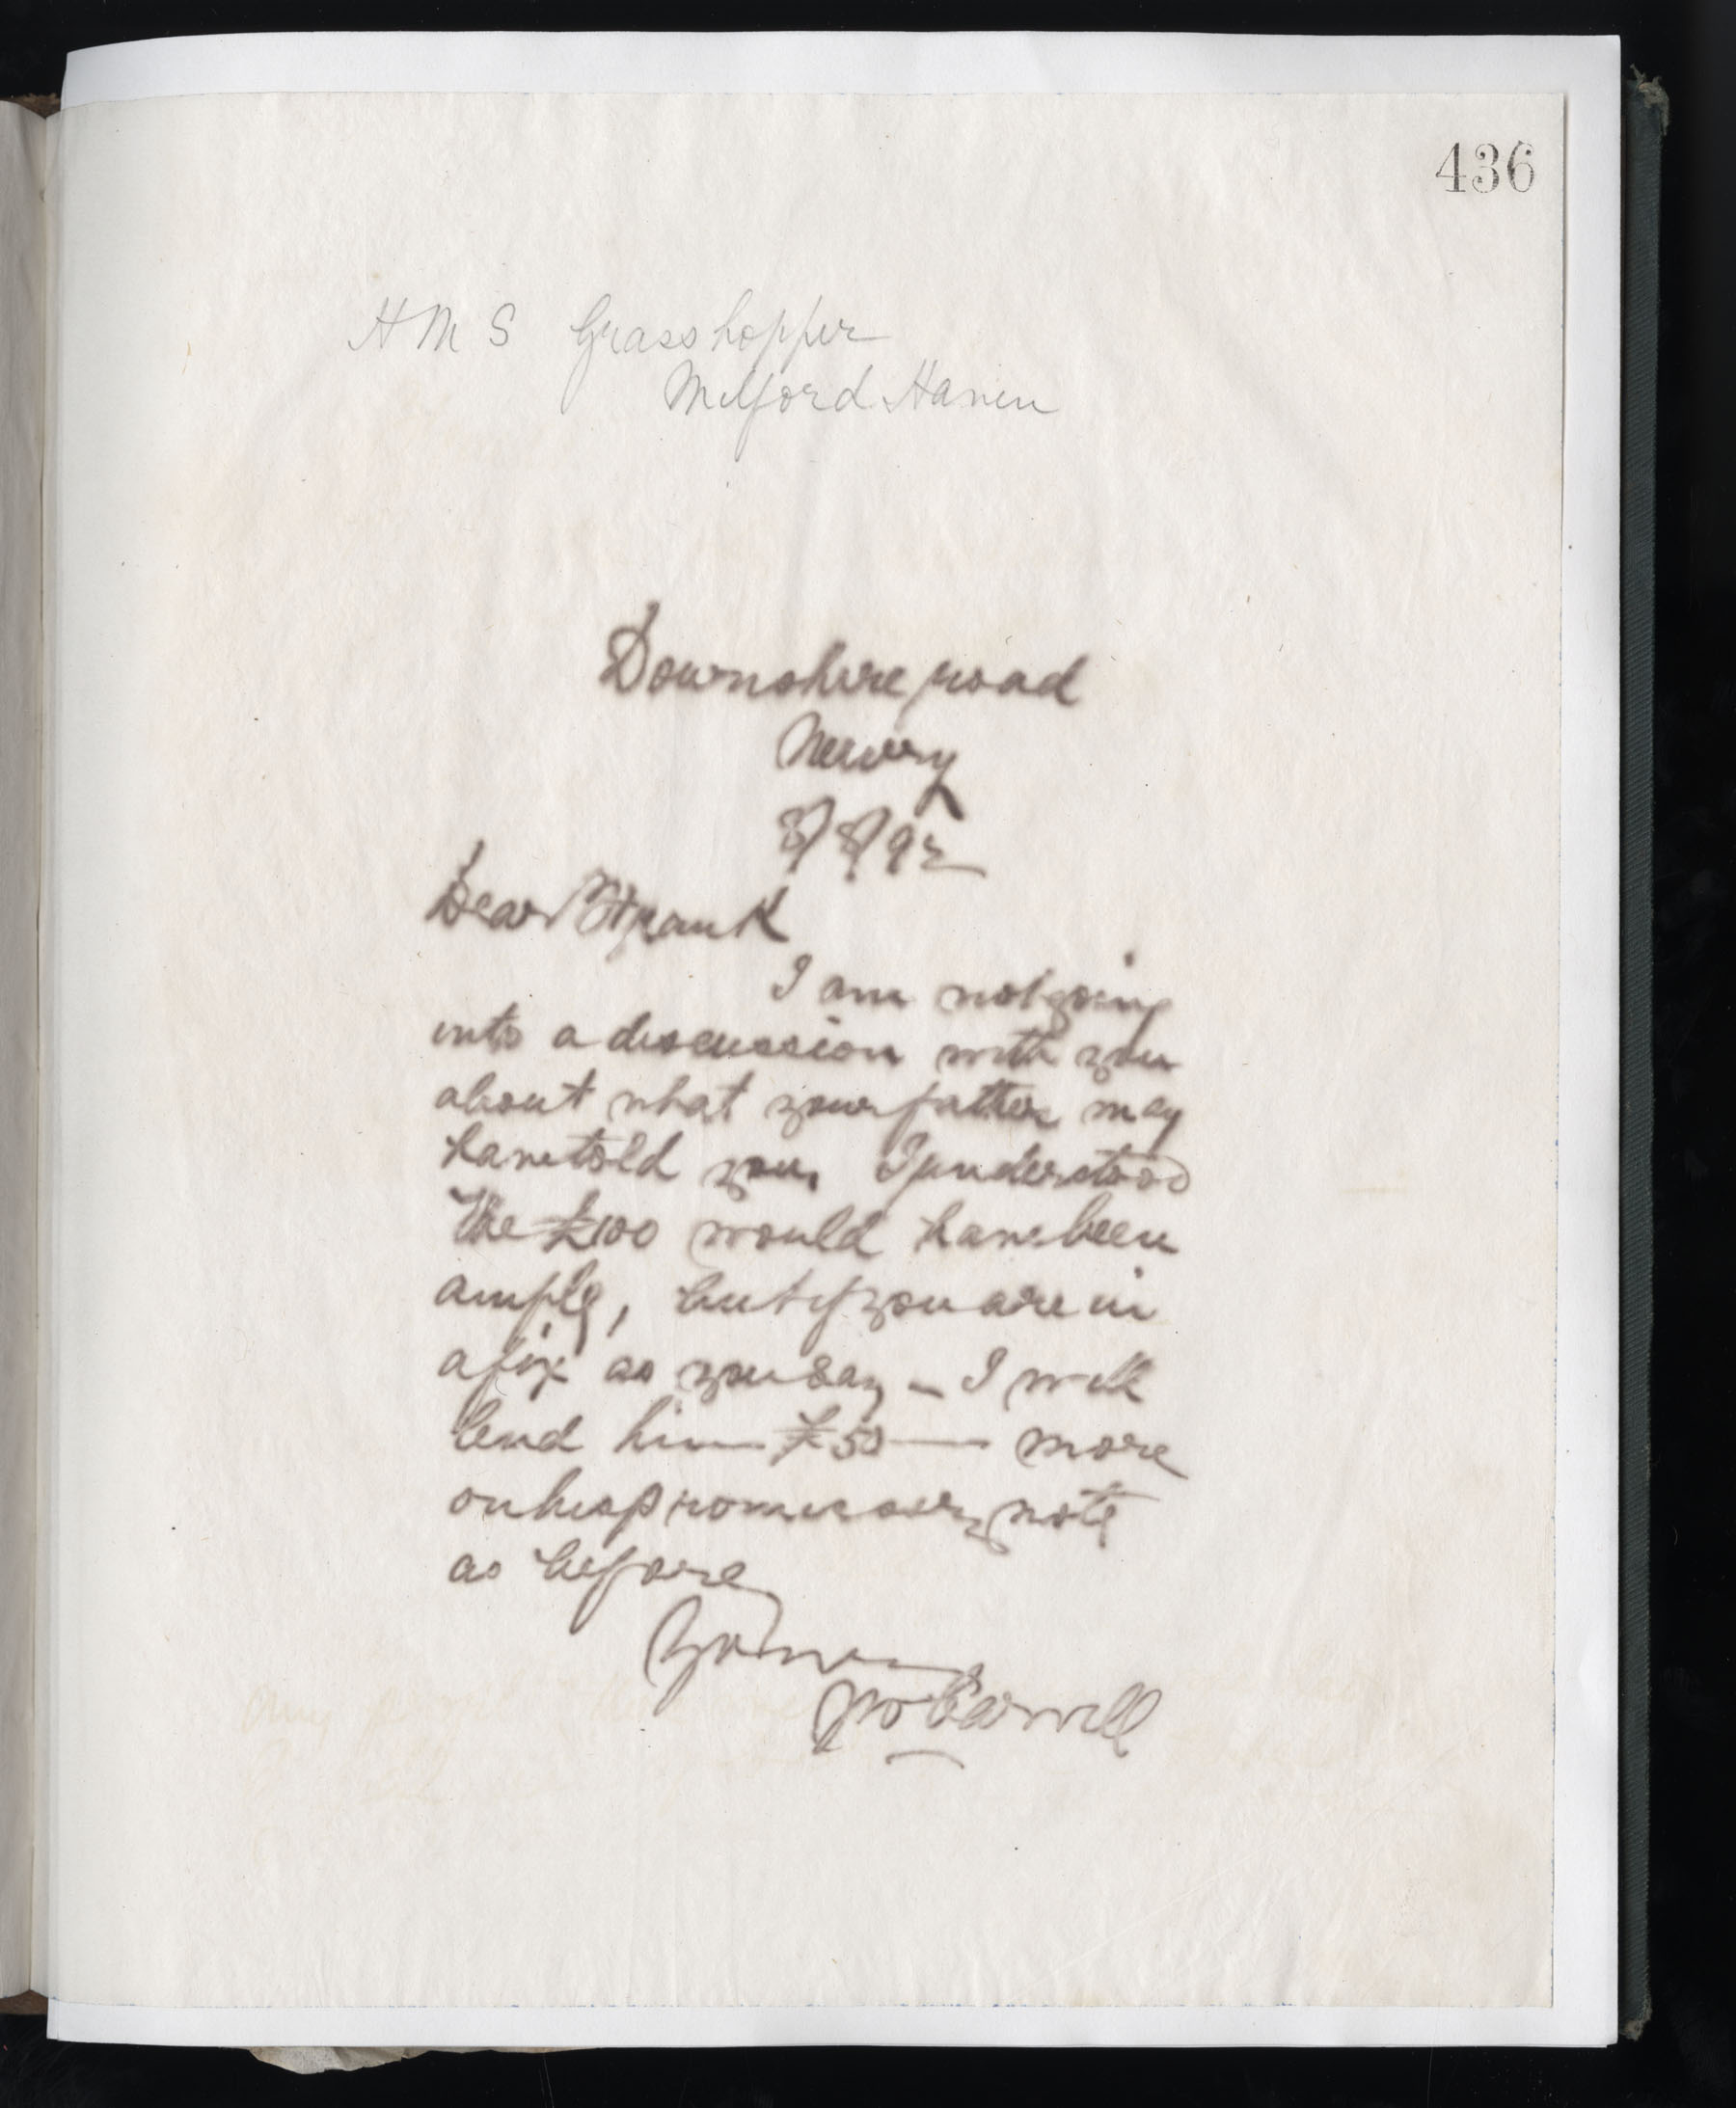 436
H M S Grasshopper
Milford Haven
Downshire road
Newry
8/8/92
Dear Frank
I am not going
into a discussion with you
about what your father may
have told you. I understood
the £100 would have been
ample, but if you are in
a fix as you say - I will
lend him £50 — more
on his promissory note
as before
Yours
Carvill